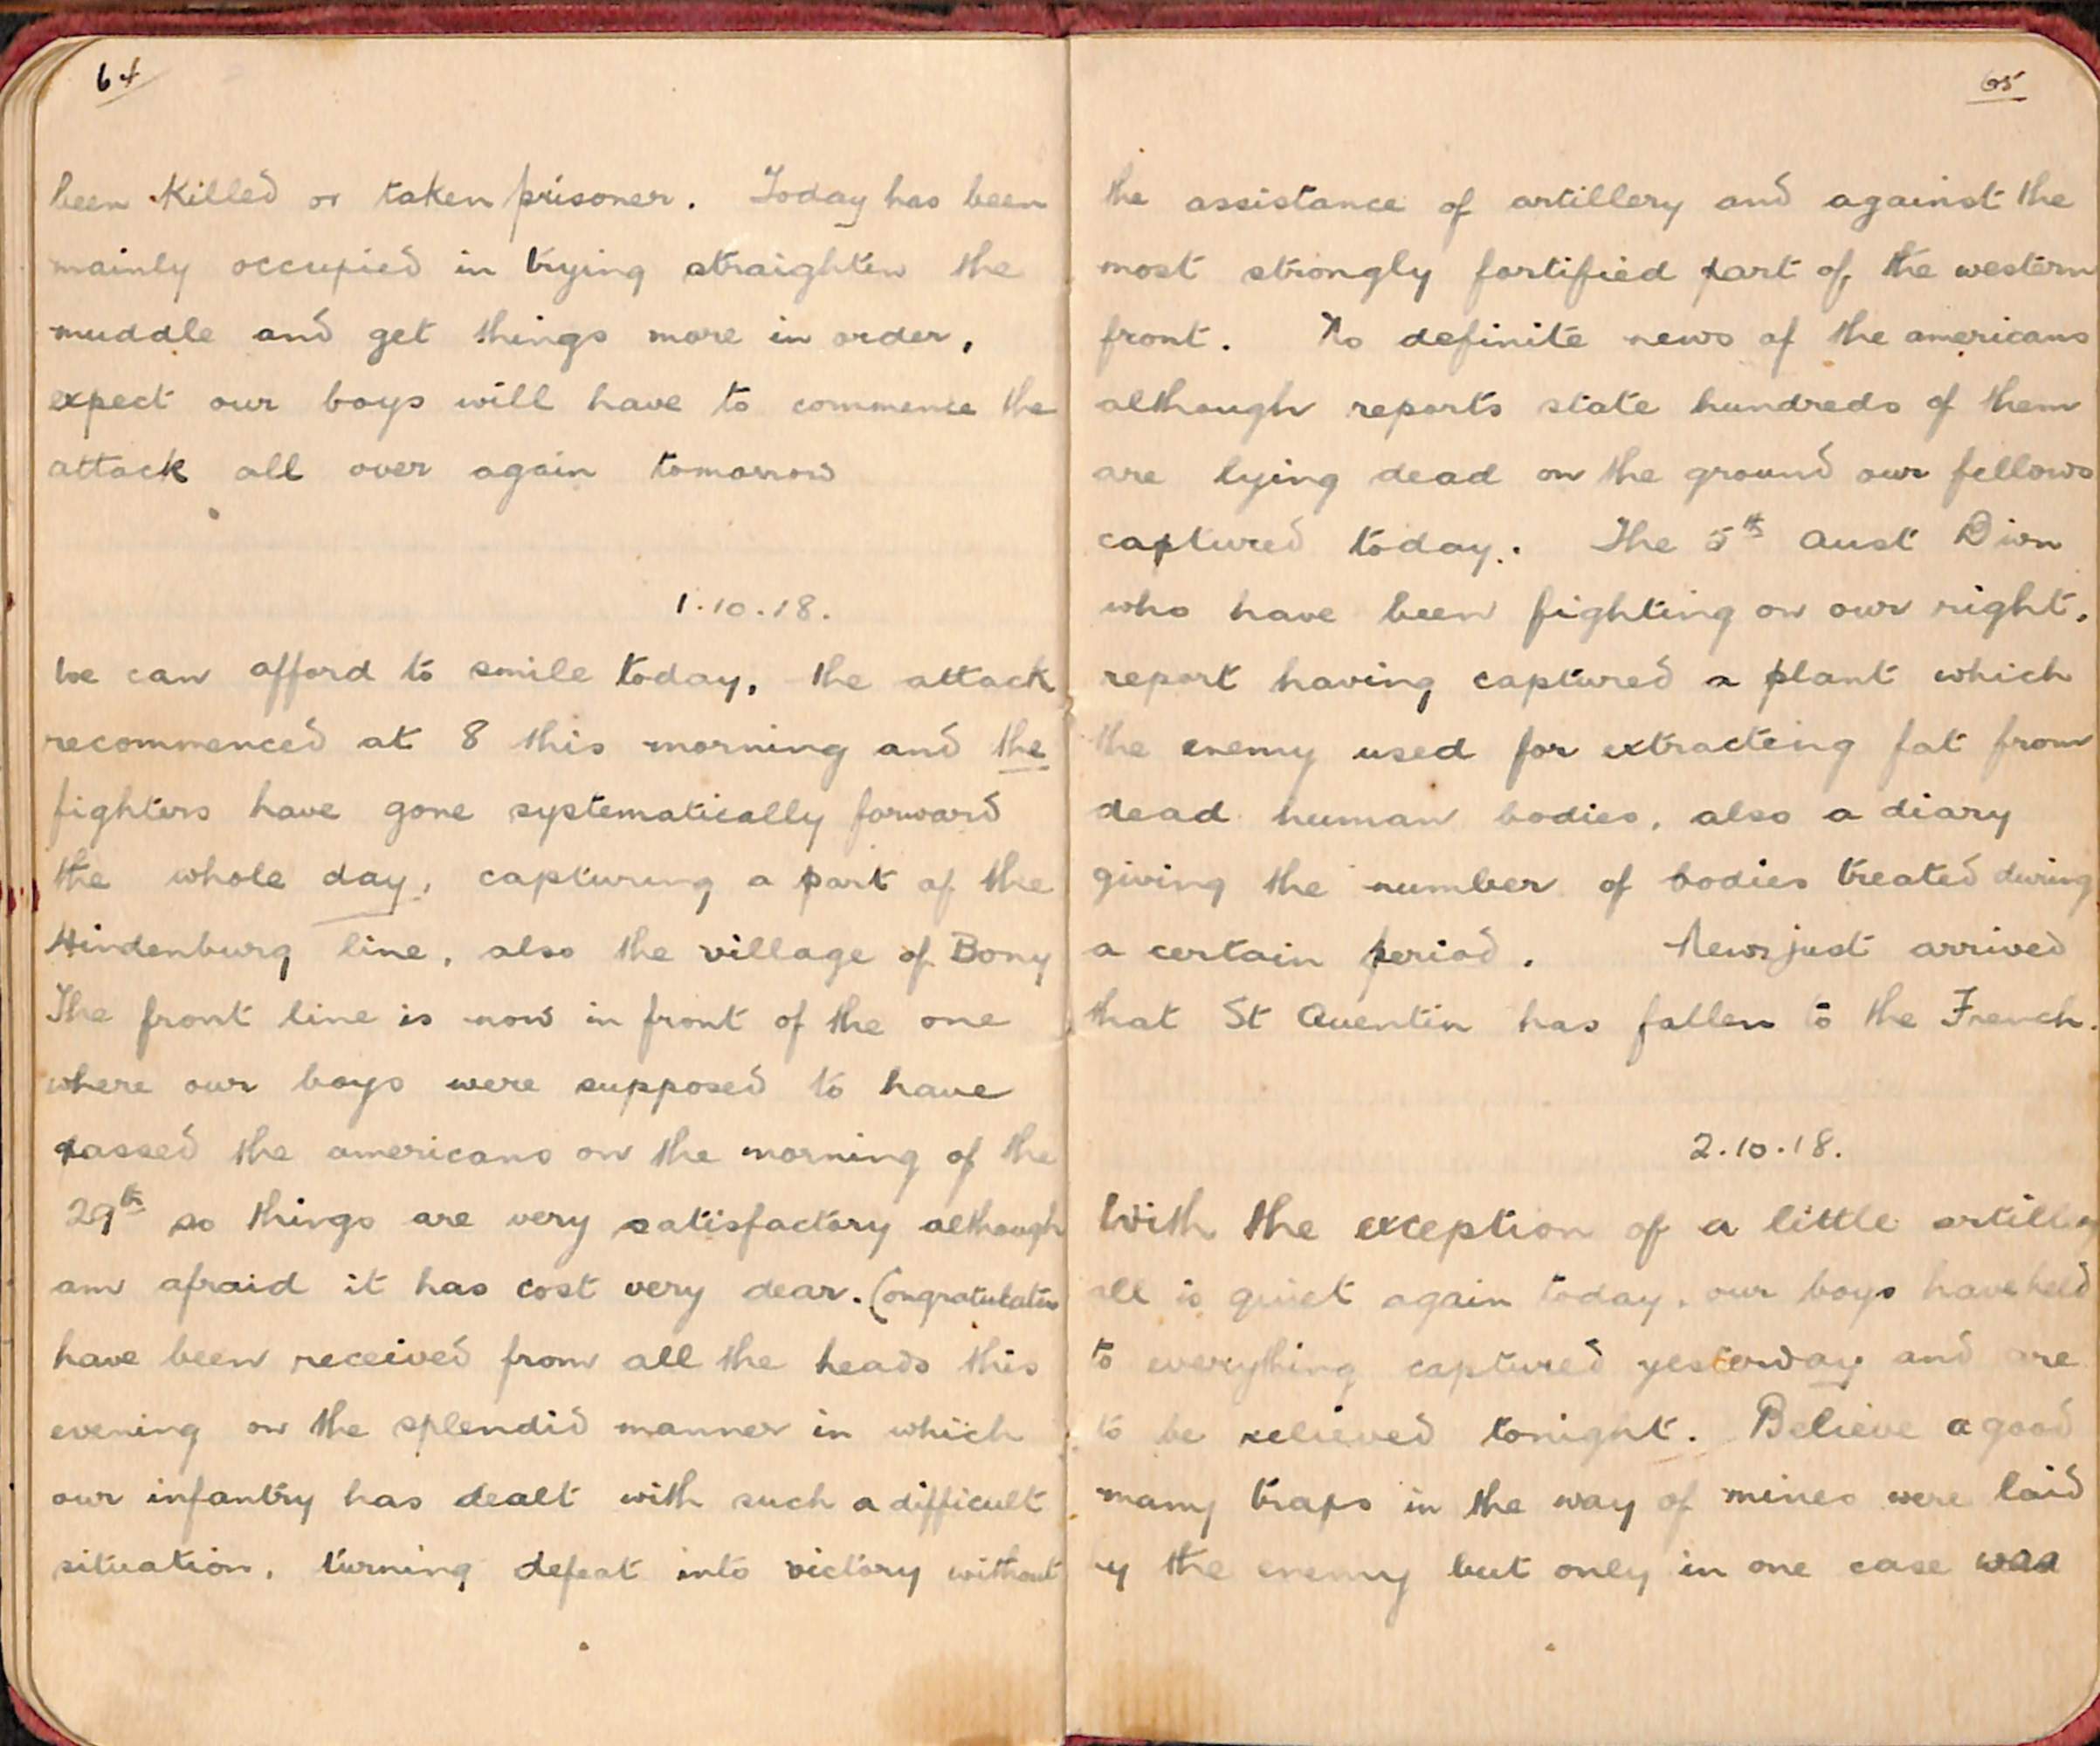 64
been killed or taken prisoner. Today has been
mainly occupied in trying straighten the
muddle and get things more in order,
expect our boys will have to commence the
attack all over again tomorrow
1.10.18.
We can afford to smile today, the attack
recommenced at 8 this morning and the
fighters have gone systematically forward
the whole day, capturing a part of the
Hindenburg line, also the village of Bony
The front line is now in front of the one
where our boys were supposed to have
passed the americans on the morning of the
29th so things are very satisfactory although
am afraid it has cost very dear. Congratulations
have been received from all the heads this
evening on the splendid manner in which
our infantry has dealt with such a difficult
situation, turning defeat into victory without
65
the assistance of artillery and against the
most strongly fortified part of, the western
front. No definite news of the americans
although reports state hundreds of them
are lying dead on the ground our fellows
captured today. The 5th Aust Divn
who have been fighting on our right,
report having captured a plant which
the enemy used for extracteing fat from
dead human bodies, also a diary
giving the number of bodies treated during
a certain period. News just arrived
that St Quentin has fallen to the French.
2.10.18.
With the exception of a little artillery
all is quiet again today, our boys have held
to everything captured yesterday and are
to be relieved tonight. Believe a good
many traps in the way of mines were laid
by the enemy but only in one case was